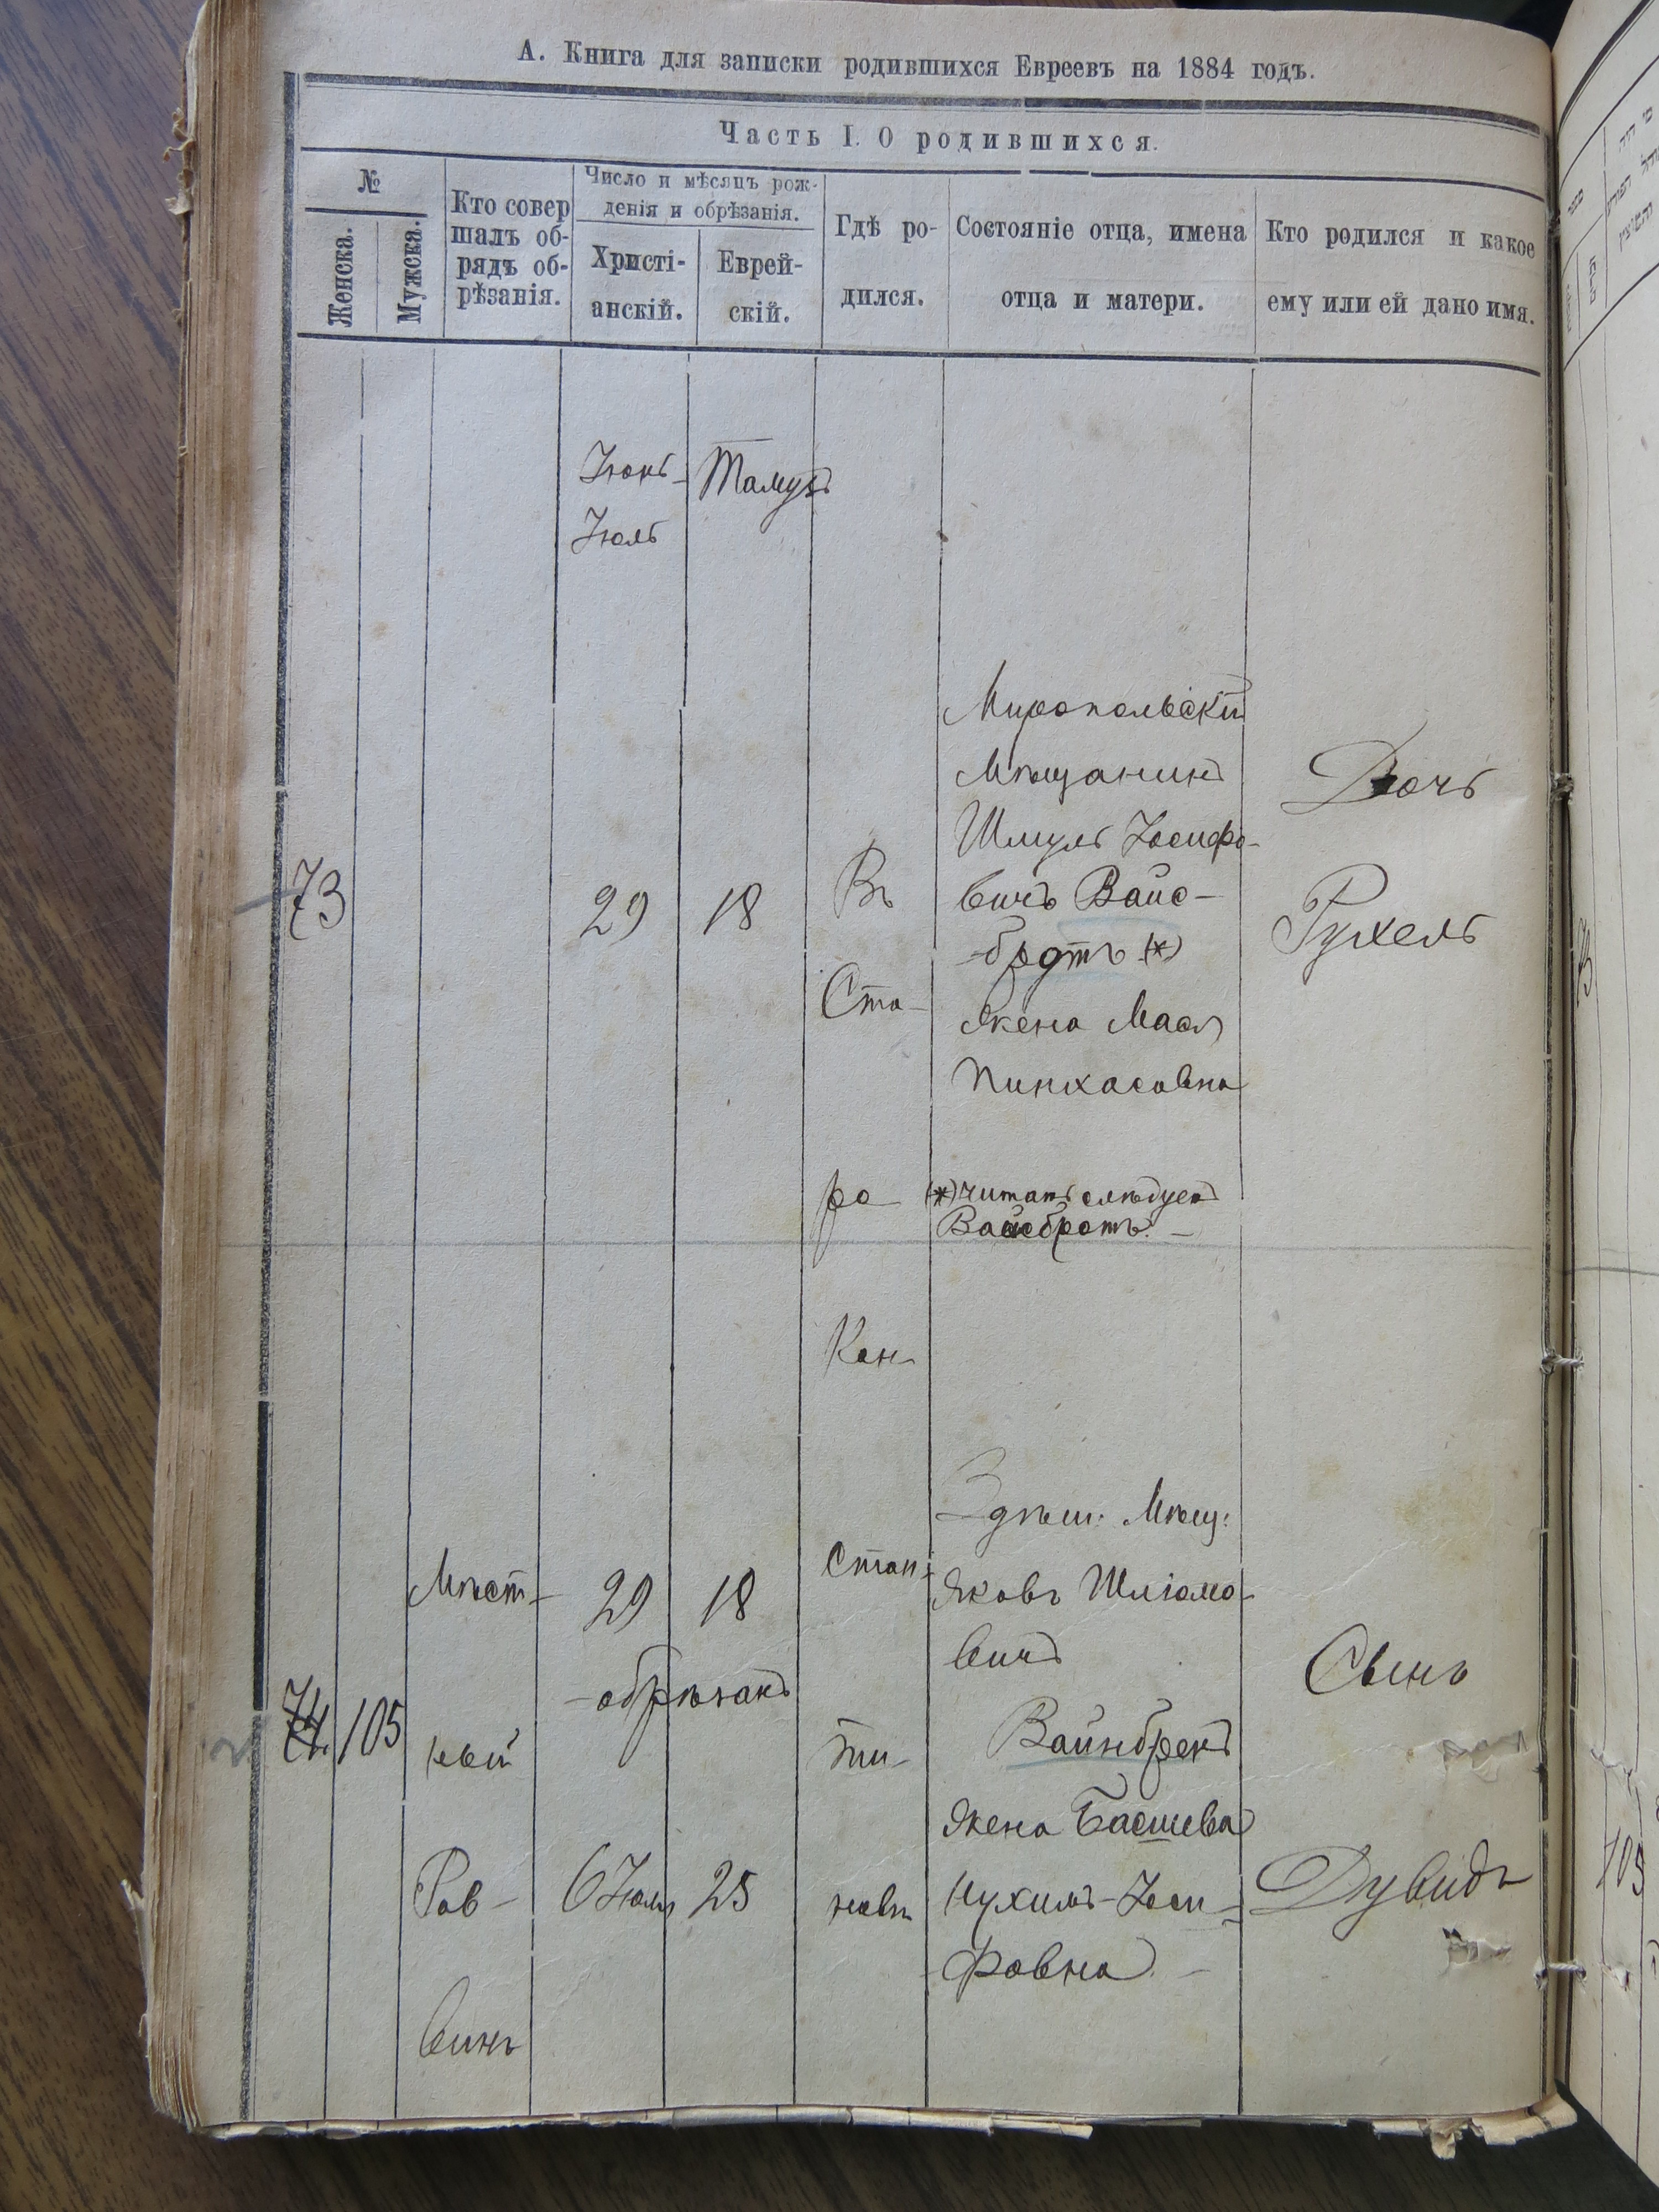 А. Книга для записки родившихся Евреевъ на 1884 годъ.
Часть I. О родившихся.
№
Женска.
Мужска.
Кто совер
шалъ об-
рядъ об-
рѣзанія.
Число и мѣсяцъ рож-
денія и обрѣзанія.
Христі-
анскій.
Еврей-
скій.
Гдѣ ро-
дился.
Состояніе отца, имена
отца и матери.
Кто родился и какое
ему или ей дано имя.
Іюнь-
Іюль
Тамузъ
73
29
18
Въ
Ста-
ро-
Кон-
стан-
ти-
новѣ
Миропольскій
Мѣщанинъ
Шмуль Іосифо-
вичъ Вайс-
-бротъ (*)
Жена Мася
Пинхасовна
(*) читать слѣдуетъ
Вайсбротъ. -
Дочь
Рухель
74.
105
Мѣст-
ный
Рав-
винъ
29
18
-обрѣзанъ
6 Іюля
25
Здѣш: Мѣщ:
Яковъ Шліомо-
вичъ
Вайнбренъ
Жена Басшева
Нухимъ-Іоси-
фовна. -
Сынъ
Дувидъ
105